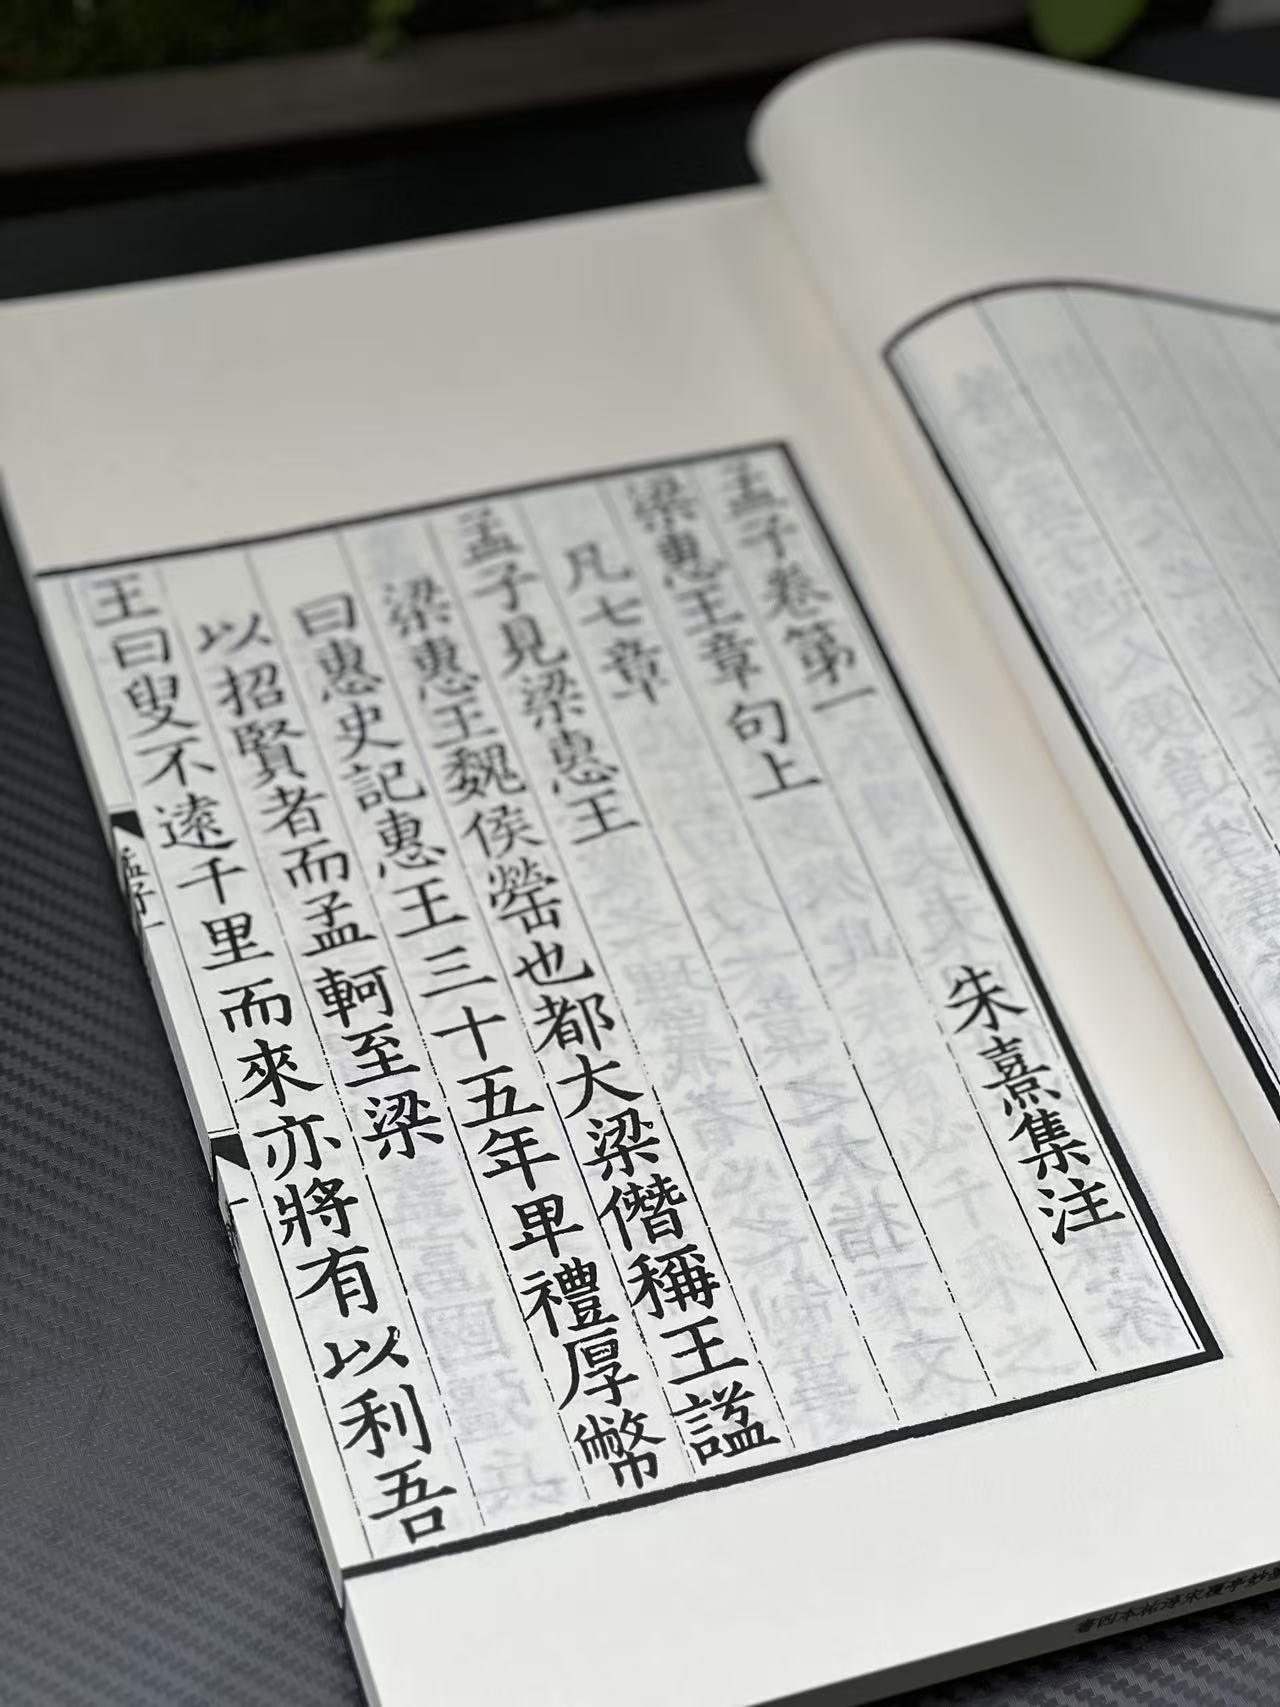 孟子卷第一
朱熹集注
梁惠王章句上
凡七章
孟子見梁惠王
梁惠王魏侯罃也都大梁僭稱王謚
曰惠史記惠王三十五年卑禮厚幣
以招賢者而孟軻至梁
王曰叟不遠千里而來亦將有以利吾
孟子一